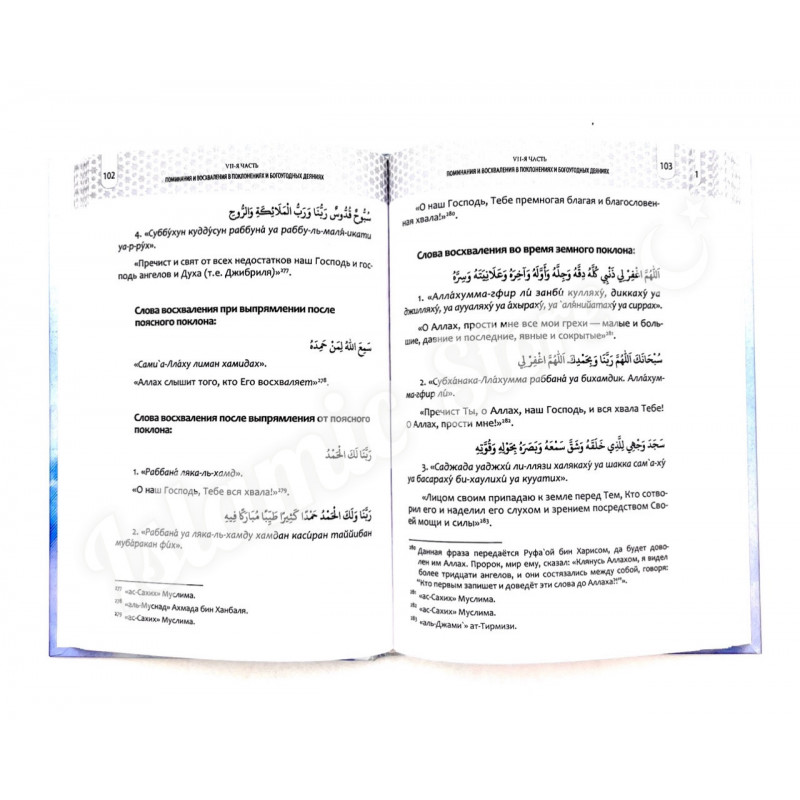 102
VII-Я ЧАСТЬ
ПОМИНАНИЯ И ВОСХВАЛЕНИЯ В ПОКЛОНЕНИЯХ И БОГОУГОДНЫХ ДЕЯНИЯХ
سُبُّوحٌ قُدُّوسٌ رَبُّنَا وَرَبُّ الْمَلَائِكَةِ وَالرُّوحِ
4. «Суббӯхун куддӯсун раббунȃ уа раббу-ль-маляӣкати
уа-р-рӯх».
«Пречист и свят от всех недостатков наш Господь и гос-
подь ангелов и Духа (т.е. Джибриля)»²⁷⁷.
Слова восхваления при выпрямлении после
поясного поклона:
سَمِعَ اللهُ لِمَنْ حَمِدَهُ
«Сами`а-Ллȃху лиман хамидах».
«Аллах слышит того, кто Его восхваляет»²⁷⁸.
Слова восхваления после выпрямления от поясного
поклона:
رَبَّنَا لَكَ الْحَمْدُ
1. «Раббанȃ ляка-ль-хамд».
«О наш Господь, Тебе вся хвала!»²⁷⁹.
رَبَّنَا وَلَكَ الْحَمْدُ حَمْدًا كَثِيرًا طَيِّبًا مُبَارَكًا فِيهِ
2. «Раббанȃ уа ляка-ль-хамду хамдан касӣран таййибан
мубȃракан фӣх».
²⁷⁷ «ас-Сахих» Муслима.
²⁷⁸ «аль-Муснад» Ахмада бин Ханбаля.
²⁷⁹ «ас-Сахих» Муслима.
VII-Я ЧАСТЬ
ПОМИНАНИЯ И ВОСХВАЛЕНИЯ В ПОКЛОНЕНИЯХ И БОГОУГОДНЫХ ДЕЯНИЯХ
103
1
«О наш Господь, Тебе премногая благая и благословен-
ная хвала!»²⁸⁰.
Слова восхваления во время земного поклона:
اَللَّهُمَّ اغْفِرْ لِي ذَنْبِي كُلَّهُ دِقَّهُ وَجِلَّهُ وَأَوَّلَهُ وَآخِرَهُ وَعَلَانِيَتَهُ وَسِرَّهُ
1. «Аллȃхумма-гфир лӣ занбӣ кулляхӯ, диккахӯ уа
джилляхӯ, уа ауураляхӯ уа ȃхырахӯ, уа `алянийатахӯ уа сиррах».
«О Аллах, прости мне все мои грехи — малые и боль-
шие, давние и последние, явные и сокрытые»²⁸¹.
سُبْحَانَكَ اَللَّهُمَّ رَبَّنَا وَبِحَمْدِكَ اَللَّهُمَّ اغْفِرْ لِي
2. «Субхȃнака-Ллȃхумма раббанȃ уа бихамдик. Аллȃхум-
ма-гфир лӣ».
«Пречист Ты, о Аллах, наш Господь, и вся хвала Тебе!
О Аллах, прости мне!»²⁸².
سَجَدَ وَجْهِي لِلَّذِي خَلَقَهُ وَشَقَّ سَمْعَهُ وَبَصَرَهُ بِحَوْلِهِ وَقُوَّتِهِ
3. «Саджада уаджхӣ ли-ллязи халякахӯ уа шакка сам`а-хӯ
уа басарахӯ би-хаулихӣ уа кууатих».
«Лицом своим припадаю к земле перед Тем, Кто сотво-
рил его и наделил его слухом и зрением посредством Сво-
ей мощи и силы»²⁸³.
²⁸⁰ Данная фраза передаётся Руфа`ой бин Харисом, да будет дово-
лен им Аллах. Пророк, мир ему, сказал: «Клянусь Аллахом, я видел
более тридцати ангелов, и они состязались между собой, говоря:
"Кто первым запишет и доведёт эти слова до Аллаха?!"».
²⁸¹ «ас-Сахих» Муслима.
²⁸² «ас-Сахих» Муслима.
²⁸³ «аль-Джами`» ат-Тирмизи.